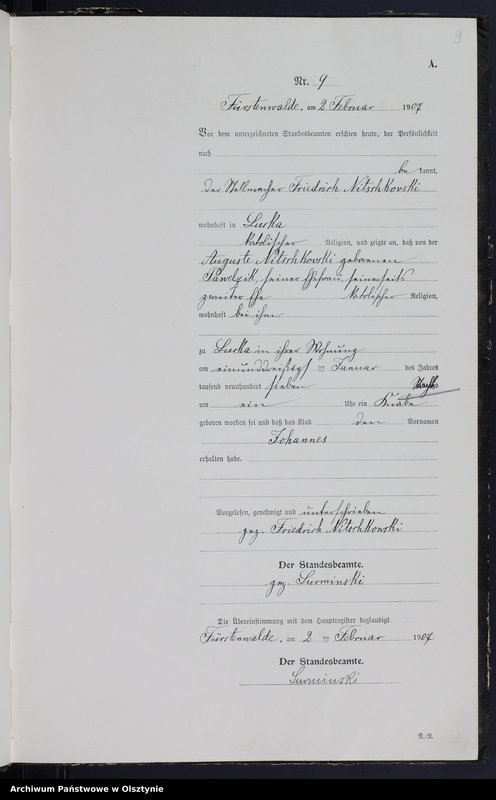 9
A.
Nr. 9
Fürstenwalde, am 2 Februar 1907
Vor dem unterzeichneten Standesbeamten erschien heute, der Persönlichkeit
nach
be kannt,
der Stellmacher Friedrich Nitschkowski
wohnhaft in Luska
katolischer Religion, und zeigte an, daß von der
Auguste Nitschkowski geborenen
Pawelzik, seiner Ehefrau, seinerseits
zweiter Ehe katolischer Religion,
wohnhaft bei ihm
zu Luska in ihrer Wohnung
am einunddreißigsten Januar des Jahres
tausend neunhundert sieben Nachts
um ein Uhr ein Knabe
geboren worden sei und daß das Kind den Vornamen
Johannes
erhalten habe.
Vorgelesen, genehmigt und unterschrieben
gez. Friedrich Nitschkowski
Der Standesbeamte.
gez. Surminski
Die Übereinstimmung mit dem Hauptregister beglaubigt
Fürstenwalde, am 2 ten Februar 1907
Der Standesbeamte.
Surminski
Archiwum Państwowe w Olsztynie